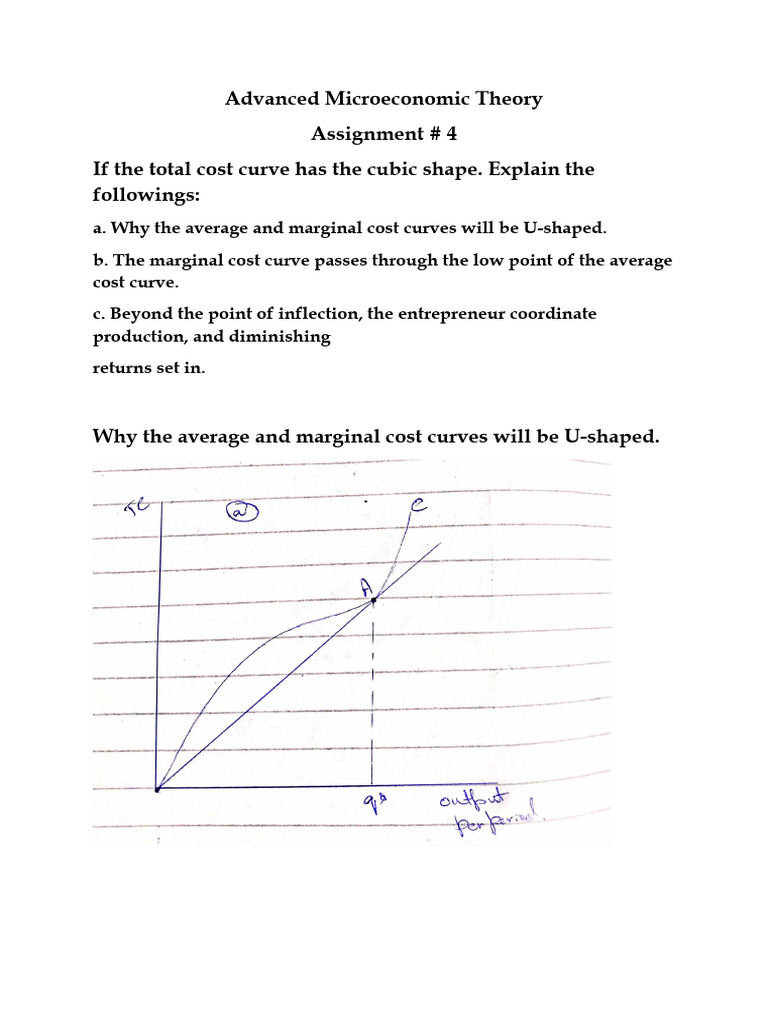 Advanced Microeconomic Theory
Assignment # 4
If the total cost curve has the cubic shape. Explain the
followings:
a. Why the average and marginal cost curves will be U-shaped.
b. The marginal cost curve passes through the low point of the average
cost curve.
c. Beyond the point of inflection, the entrepreneur coordinate
production, and diminishing
returns set in.
Why the average and marginal cost curves will be U-shaped.
TC
a
C
A
q*
output
per period.